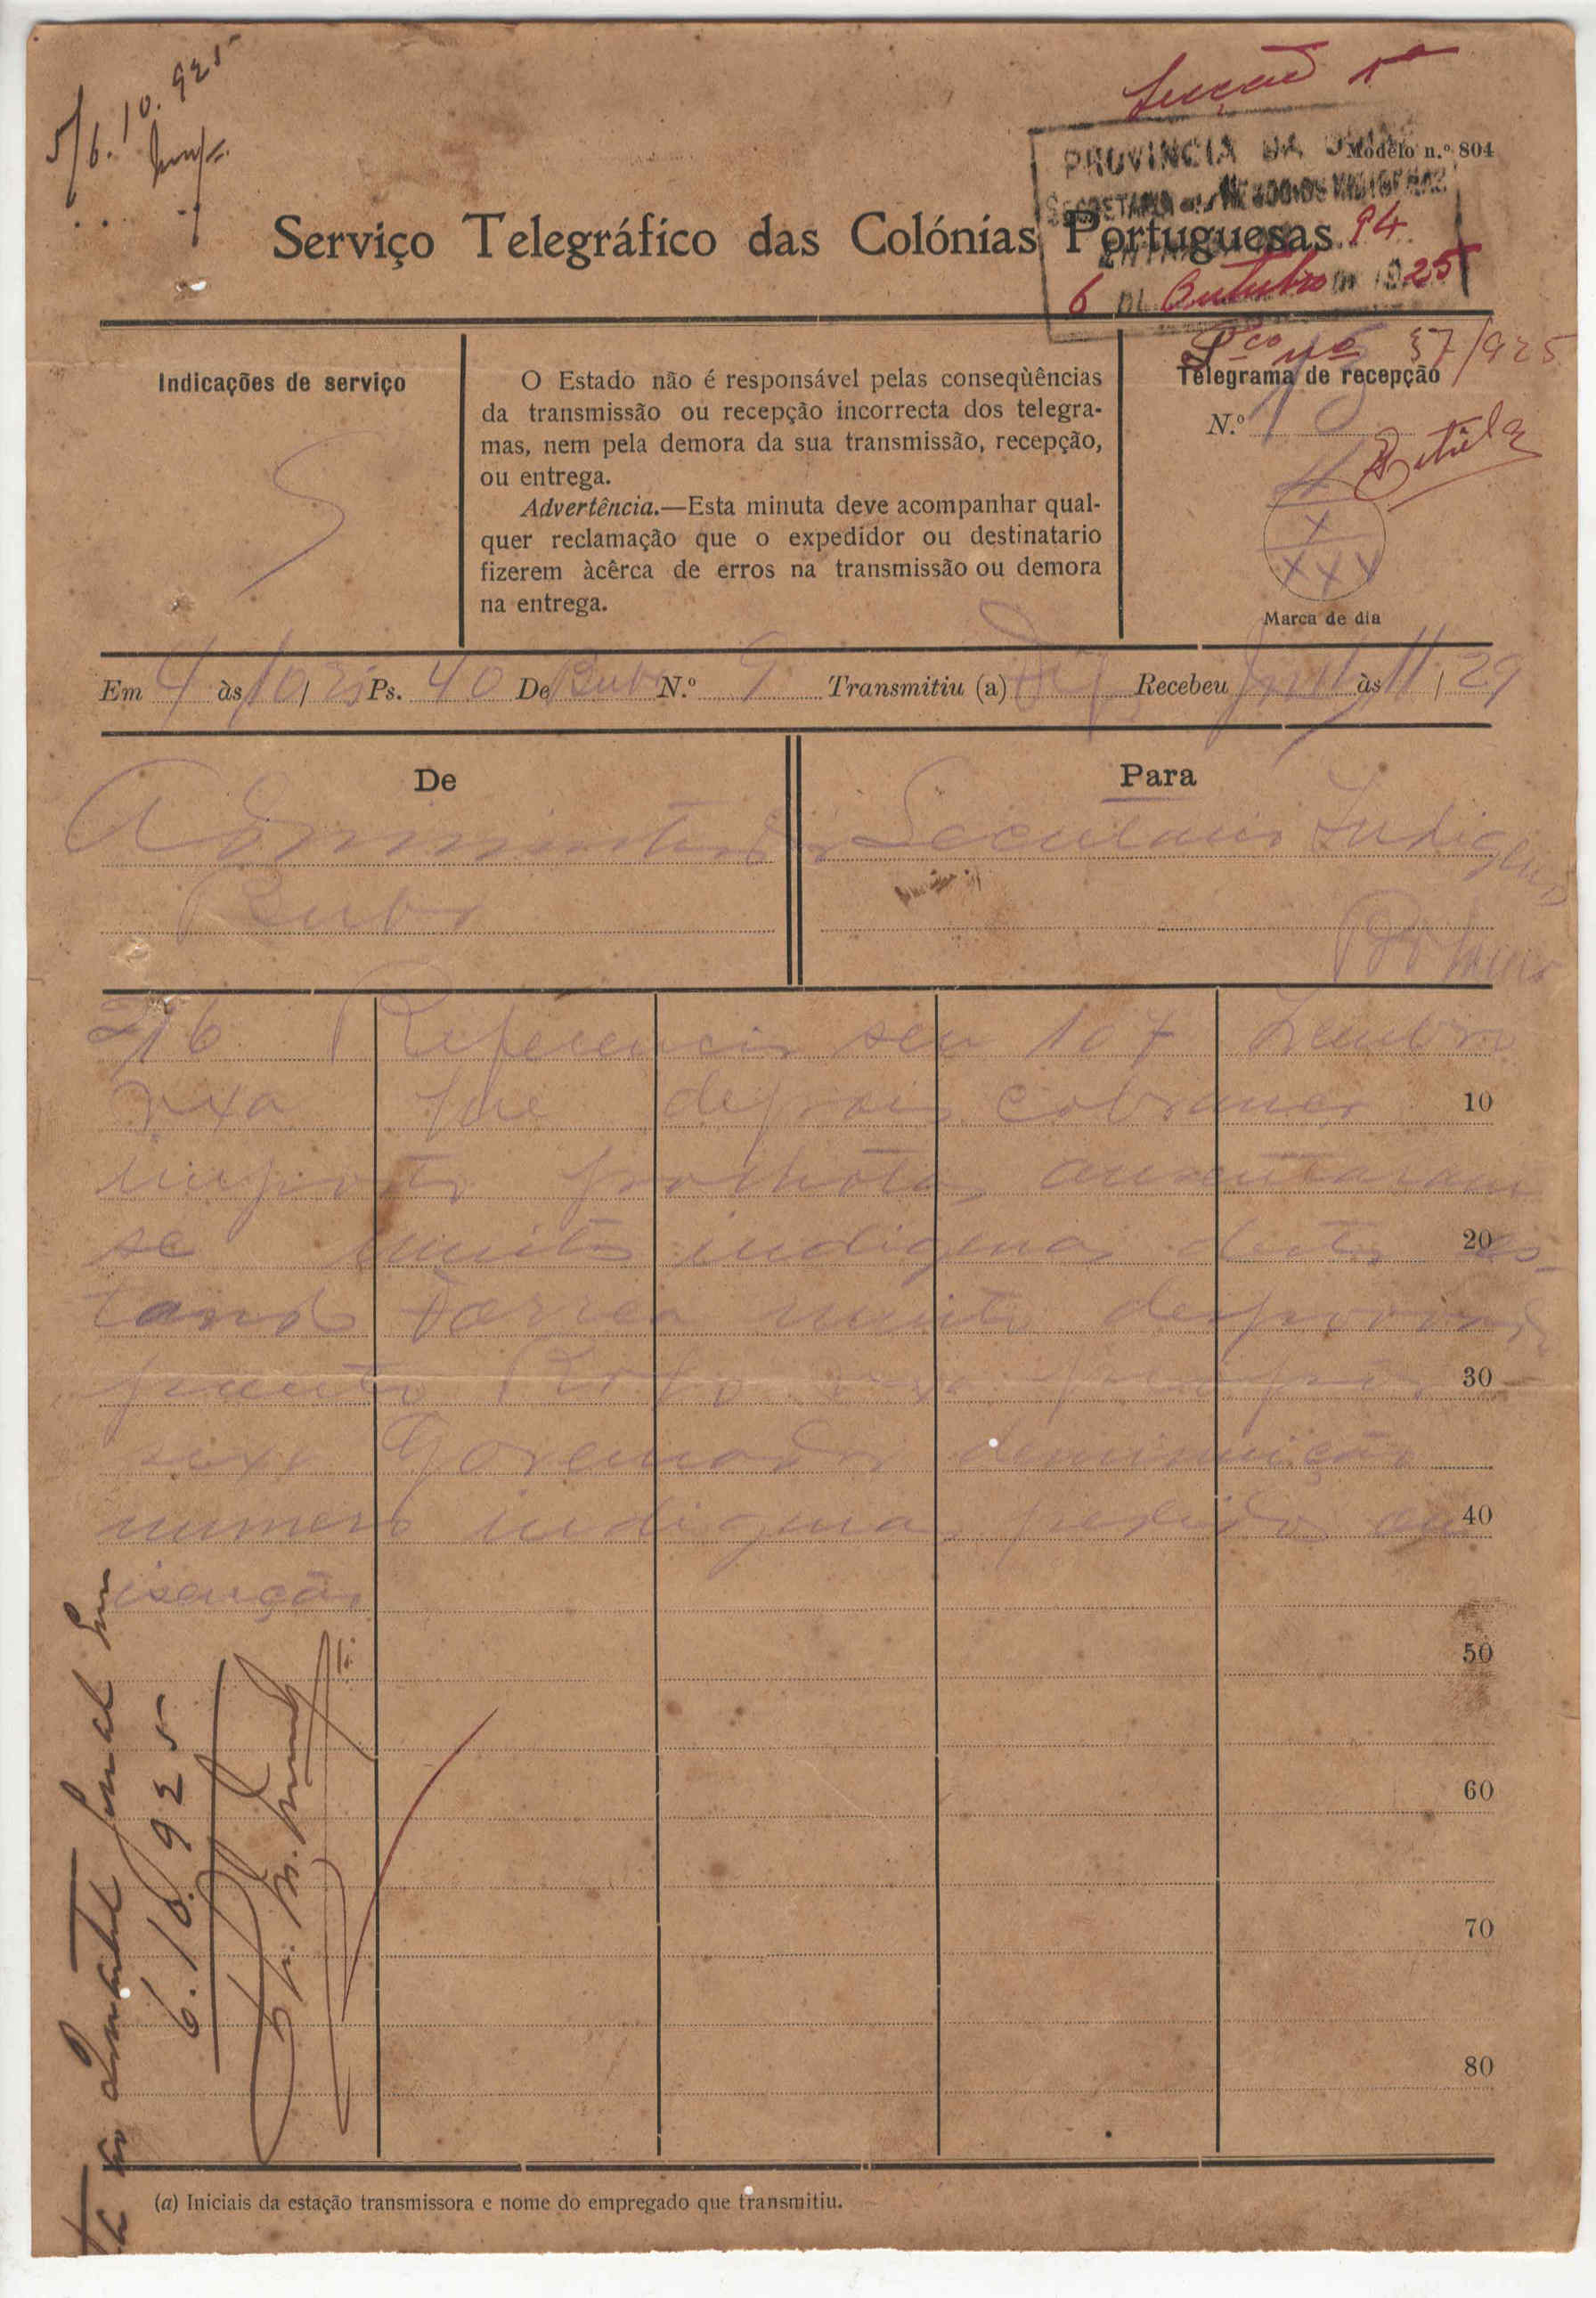 5/6.10.925
Secção 1ª
PROVINCIA DA GUINÉ
Modêlo n.º 804
SECRETARIA DOS NEGOCIOS INDIGENAS
94
6 DE Outubro DE 1925
Serviço Telegráfico das Colónias Portuguesas
Pco nº 57/925
Indicações de serviço
S
O Estado não é responsável pelas conseqùências
da transmissão ou recepção incorrecta dos telegra-
mas, nem pela demora da sua transmissão, recepção,
ou entrega.
Advertência.—Esta minuta deve acompanhar qual-
quer reclamação que o expedidor ou destinatario
fizerem àcêrca de erros na transmissão ou demora
na entrega.
Telegrama de recepção
N.º 15
X
XXV
Marca de dia
Em 4 às 10 25 Ps. 40 De Buba N.º 9 Transmitiu (a) Recebeu às 11 | 29
De
Para
Administrador
Buba
Secretario Indigenas
Bolama
216 Referencia seu 107 Lembro
vexa que depois cobrança 10
imposto palhota ausentaram
se muitos indigenas desta es- 20
tando area muito despovoada
30
sexa Governador deminuição
numero indigenas pedido ou 40
isenção
50
60
70
80
6.10.925
(a) Iniciais da estação transmissora e nome do empregado que transmitiu.